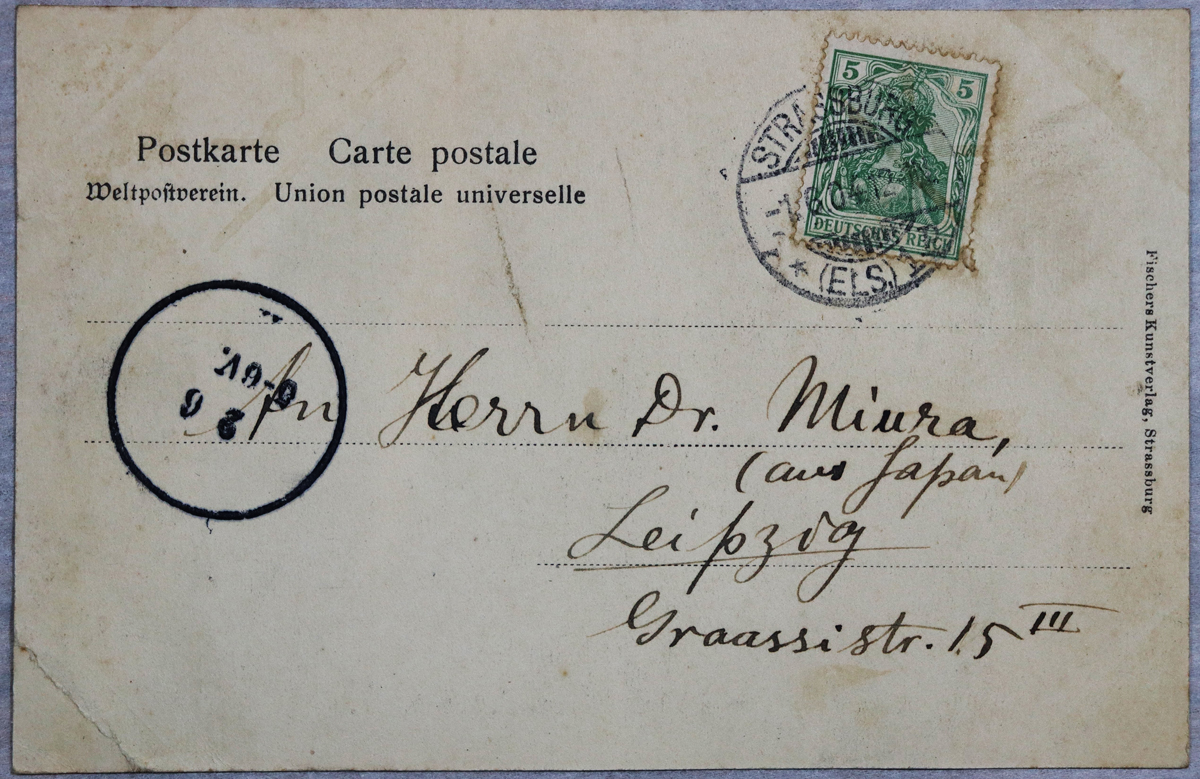 Postkarte Carte postale
Weltpostverein. Union postale universelle
5 5
DEUTSCHES REICH
STRASSBURG
* (ELS.)
An Herrn Dr. Miura,
(aus Japan)
Leipzig
Graassistr. 15 III
Fischers Kunstverlag, Strassburg